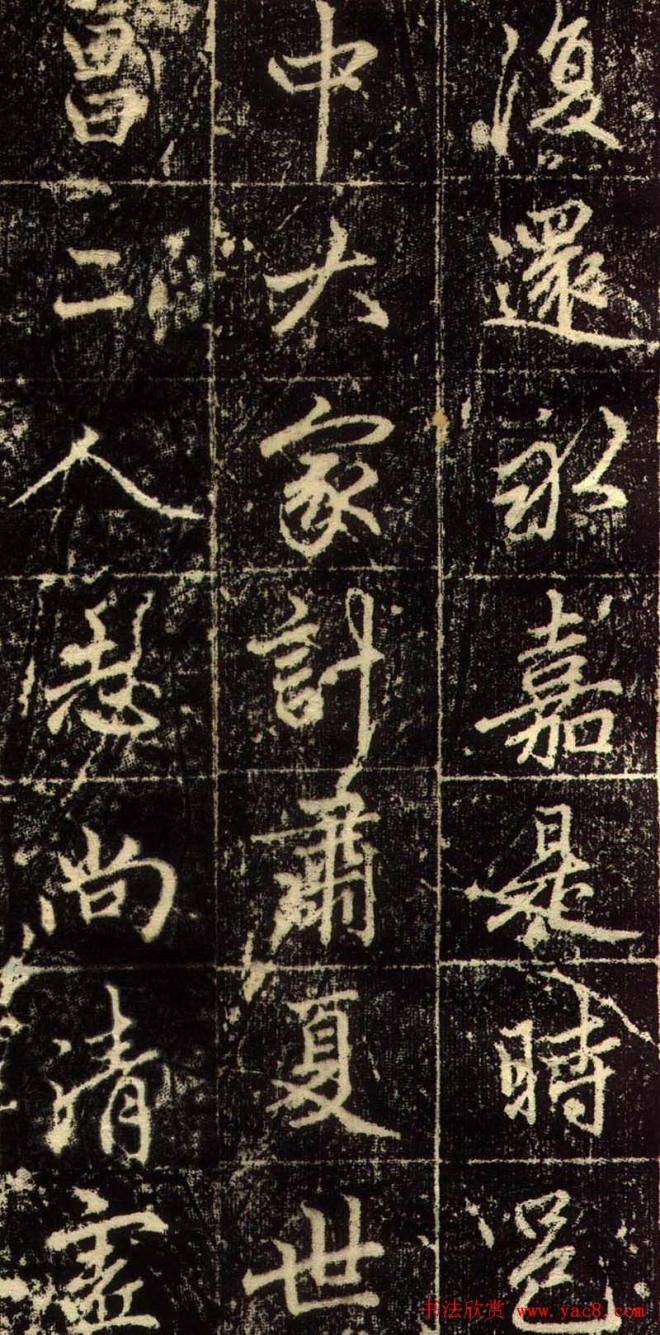 復還永嘉是時邑
中大家計蕭夏世
曾二人慧尚清虛
书法欣赏 www.yac8.com